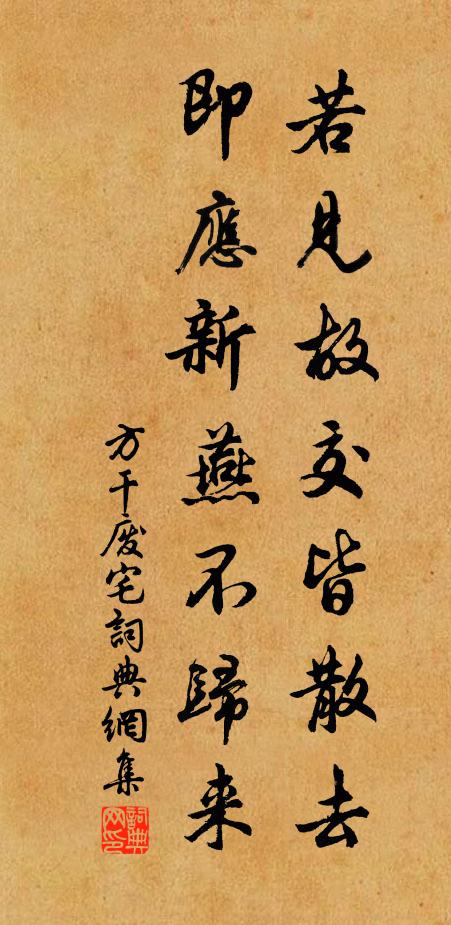 若見故交皆散去
即應新燕不歸来
方干廢宅詞典網集
詞典网印